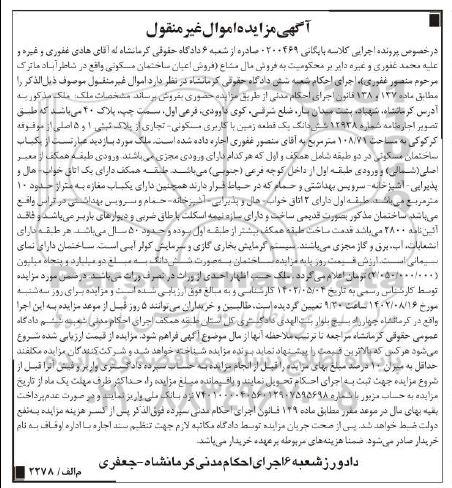 آگهی مزایده اموال غیر منقول
درخصوص پرونده اجرایی کلاسه بایگانی ۰۲۰۰۴۶۹ صادره از شعبه ۶ دادگاه حقوقی کرمانشاه له آقای هادی غفوری و غیره و
علیه محمد غفوری و غیره دایر بر محکومیت به فروش مال مشاع (فروش اعیان ساختمان مسکونی واقع در شاطرآباد ماترک
مرحوم منصور غفوری)، اجرای احکام شعبه شش دادگاه حقوقی کرمانشاه در نظر دارد اموال غیرمنقول موصوف ذیل‌الذکر را
مطابق ماده ۱۳۷ و ۱۳۸ قانون اجرای احکام مدنی از طریق مزایده حضوری بفروش برساند. مشخصات ملک: ملک مذکور به
آدرس کرمانشاه، شهیاد، پشت میدان بار، ضلع شرقی، کوی داوودی، فرعی اول، سمت چپ، پلاک ۴۰ می‌باشد که طبق
تصویر اجاره‌نامه شماره ۱۲۹۳۸ شش‌دانگ یک قطعه زمین با کاربری مسکونی- تجاری از پلاک ثبتی ۱ و ۵ اصلی از موقوفه
کرکوکی ۱۰۸/۷۱ مترمربع به آقای منصور غفوری اجاره داده شده است. ملک مورد بازدید عبارتست از یکباب
ساختمان مسکونی در دو طبقه شامل همکف و اول که هر کدام دارای ورودی مجزی می‌باشند. ورودی طبقه همکف از معبر
اصلی (شمالی) و ورودی طبقه اول از داخل کوچه فرعی (جنوبی) می‌باشد. طبقه همکف دارای یک اتاق خواب- هال و
پذیرایی- آشپزخانه- سرویس بهداشتی و حمام که در حیاط قرار دارند همچنین دارای یکباب مغازه به متراژ حدود ۱۰
مترمربع می‌باشد. طبقه اول دارای ۲ اتاق خواب- هال و پذیرایی- آشپزخانه- حمام و سرویس بهداشتی در تراس واقع
می‌باشد. ساختمان مذکور بصورت قدیمی ساخت و دارای سازه نیمه اسکلت با طاق ضربی و دیوارهای باربر می‌باشد و فاقد
آئین‌نامه ۲۸۰۰ می باشد قدمت ساخت طبقه همکف بیشتر از طبقه اول بوده و حدود ۵۰ سال می‌باشد. هر طبقه دارای
انشعابات آب، برق و گاز مجزی می‌باشند. سیستم گرمایش بخاری گازی و سرمایش کولر آبی است. ساختمان دارای نمای
سیمانی است. ارزش قیمت روز پایه مزایده ساختمان به‌صورت شش‌دانگ به مبلغ دو میلیارد و پنجاه میلیون
(۲/۰۵۰/۰۰۰/۰۰۰) تومان اعلام می‌گردد. ملک حسب اظهار احدی از وراث در تصرف وراث می‌باشد و حق مورد مزایده
توسط کارشناس رسمی به تاریخ ۱۴۰۲/۰۵/۰۴ کارشناسی و به مبالغ فوق ارزیابی شده است و مزایده برای روز سه‌شنبه
مورخ ۱۴۰۲/۰۸/۱۶ ساعت ۹/۳۰ تعیین گردیده است. طالبین و خریداران می‌توانند ۵ روز قبل از موعد مزایده به این اجرا
واقع در کرمانشاه چهارراه بسیج بلوار بنت‌الهدی دادگستری کل استان طبقه همکف اجرای احکام مدنی شعبه ششم دادگاه
عمومی حقوقی کرمانشاه مراجعه تا ترتیب ملاحظه آنها از مال موضوع آگهی فراهم شود. مزایده از قیمت ارزیابی شده شروع
می‌شود هر کس که بالاترین قیمت را پیشنهاد نماید برنده مزایده شناخته خواهد شد و شرکت‌کنندگان مزایده مکلفند
حداقل به میزان ۱۰ درصد مبلغ بهای مزایده را قبل از انجام مزایده به حساب سپرده دادگستری واریز و فیش آنرا قبل از
شروع مزایده جهت ثبت به اجرای احکام تحویل نمایند و باقیمانده مبلغ مزایده را، حداکثر ظرف مهلت یک ماه از تاریخ
مزایده به حساب مزبور به شماره نزد بانک ملی واریز نمایند و در صورت عدم پرداخت
بقیه بهای مال در موعد مقرر مطابق ماده ۱۴۹ قانون اجرای احکام مدنی سپرده فوق‌الذکر پس از کسر هزینه مزایده به‌نفع
دولت ضبط خواهد شد. پس از صحت جریان مزایده توسط دادگاه مکاتبه لازم جهت تنظیم سند اجاره با اداره اوقاف به نام
خریدار صادر می‌شود. ضمنا هزینه‌های مربوطه بر عهده خریدار می‌باشد.
دادورز شعبه ۶ اجرای احکام مدنی کرمانشاه- جعفری
م الف/ ۲۲۷۸